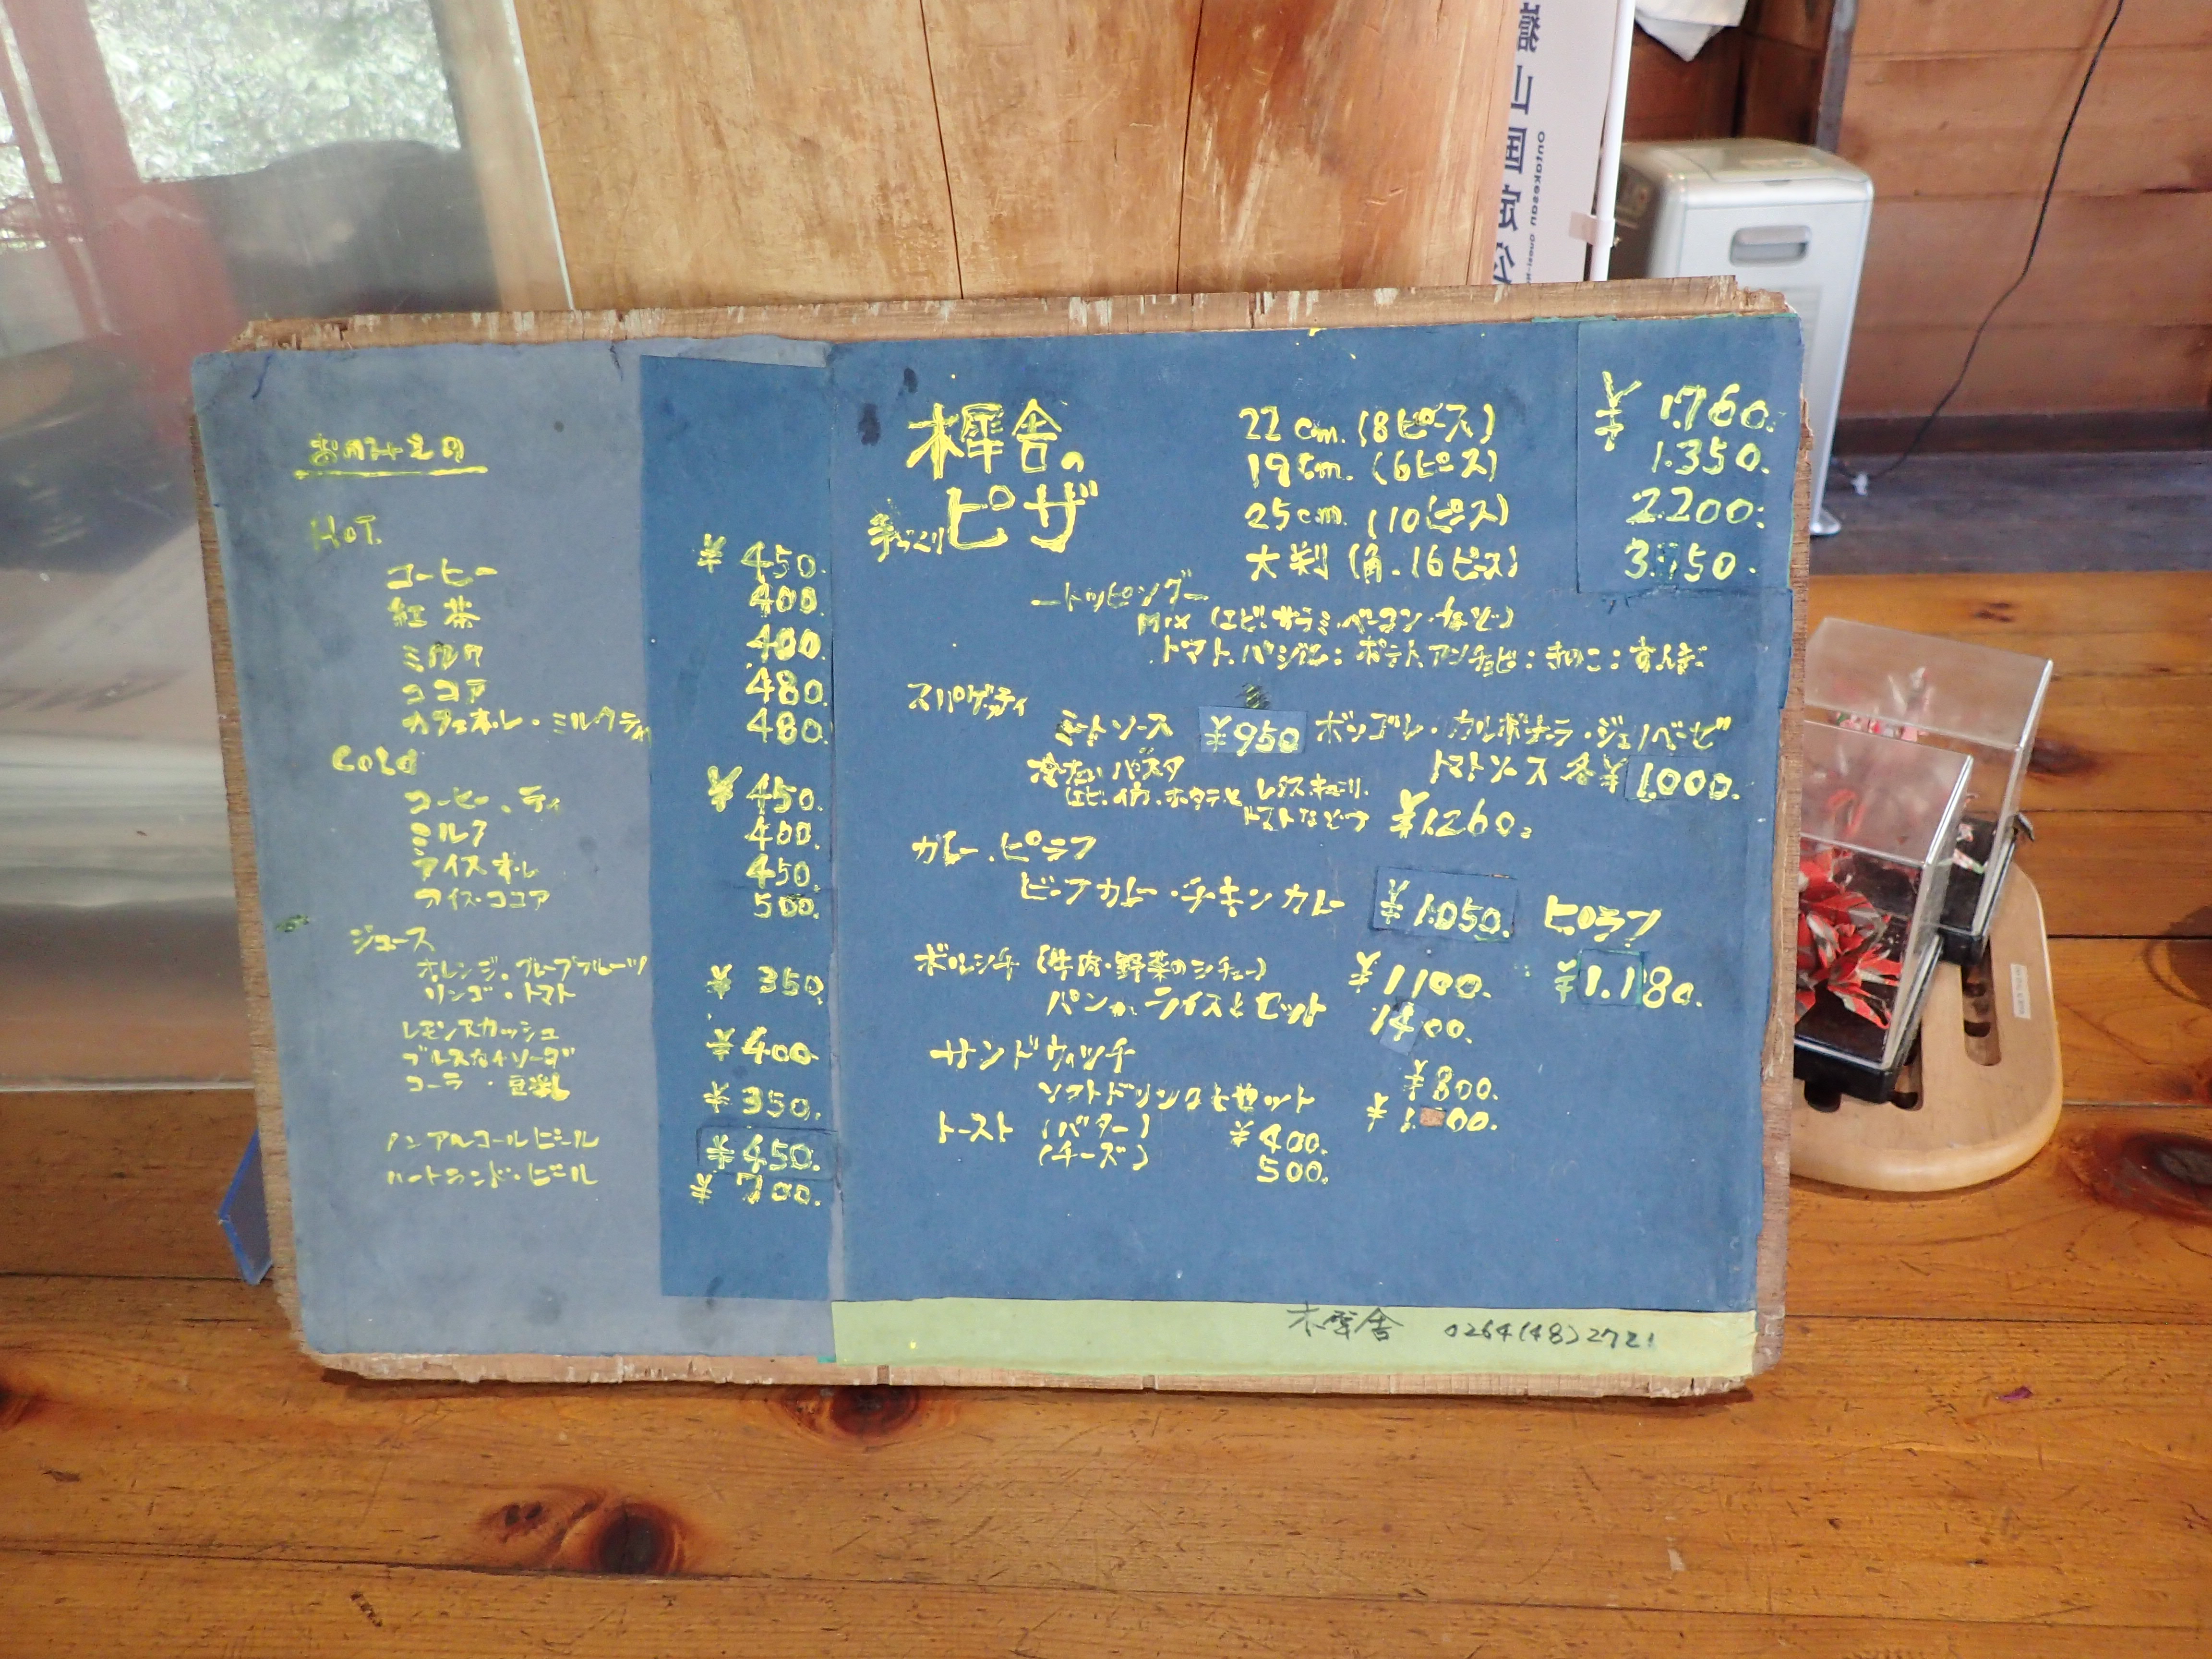 おのみもの
HOT
コーヒー ¥450.
紅茶 400.
ミルク 400.
ココア 480.
カフェオ・レ・ミルクティ 480.
Cold
コーヒー、ティ ¥450.
ミルク 400.
アイスオ・レ 450.
アイス・ココア 500.
ジュース
オレンジ、グレープフルーツ
リンゴ・トマト ¥350.
レモンスカッシュ
¥400
コーラ・豆乳 ¥350.
ノンアルコールビール ¥450.
ハートランド・ビール ¥700.
木犀舎の
手づくりピザ
22cm.(8ピース) ¥1.760.
19cm.(6ピース) 1.350.
25cm.(10ピース) 2.200.
大判(角.16ピース) 3.150.
ートッピングー
Mix(エビ.サラミ.ベーコン.など)
トマト.バジル:ポテト.アンチョビ:きのこ:
スパゲッティ
ミートソース ¥950 ボンゴレ・カルボナーラ・ジェノベーゼ
トマトソース 各¥1.000.
冷たいパスタ
(エビ.イカ.ホタテとレタス.キューリ.
トマトなど) ¥1.260.
カレー.ピラフ
ビーフカレー・チキンカレー ¥1.050. ピラフ
¥1.180.
ボルシチ(牛肉・野菜のシチュー) ¥1100.
パンか.ライスとセット 1400.
サンドウィッチ ¥800.
ソフトドリンクとセット
トースト(バター) ¥400.
(チーズ) 500.
木犀舎 0264(48)2721
山国定公
Ontakesan Quasi-